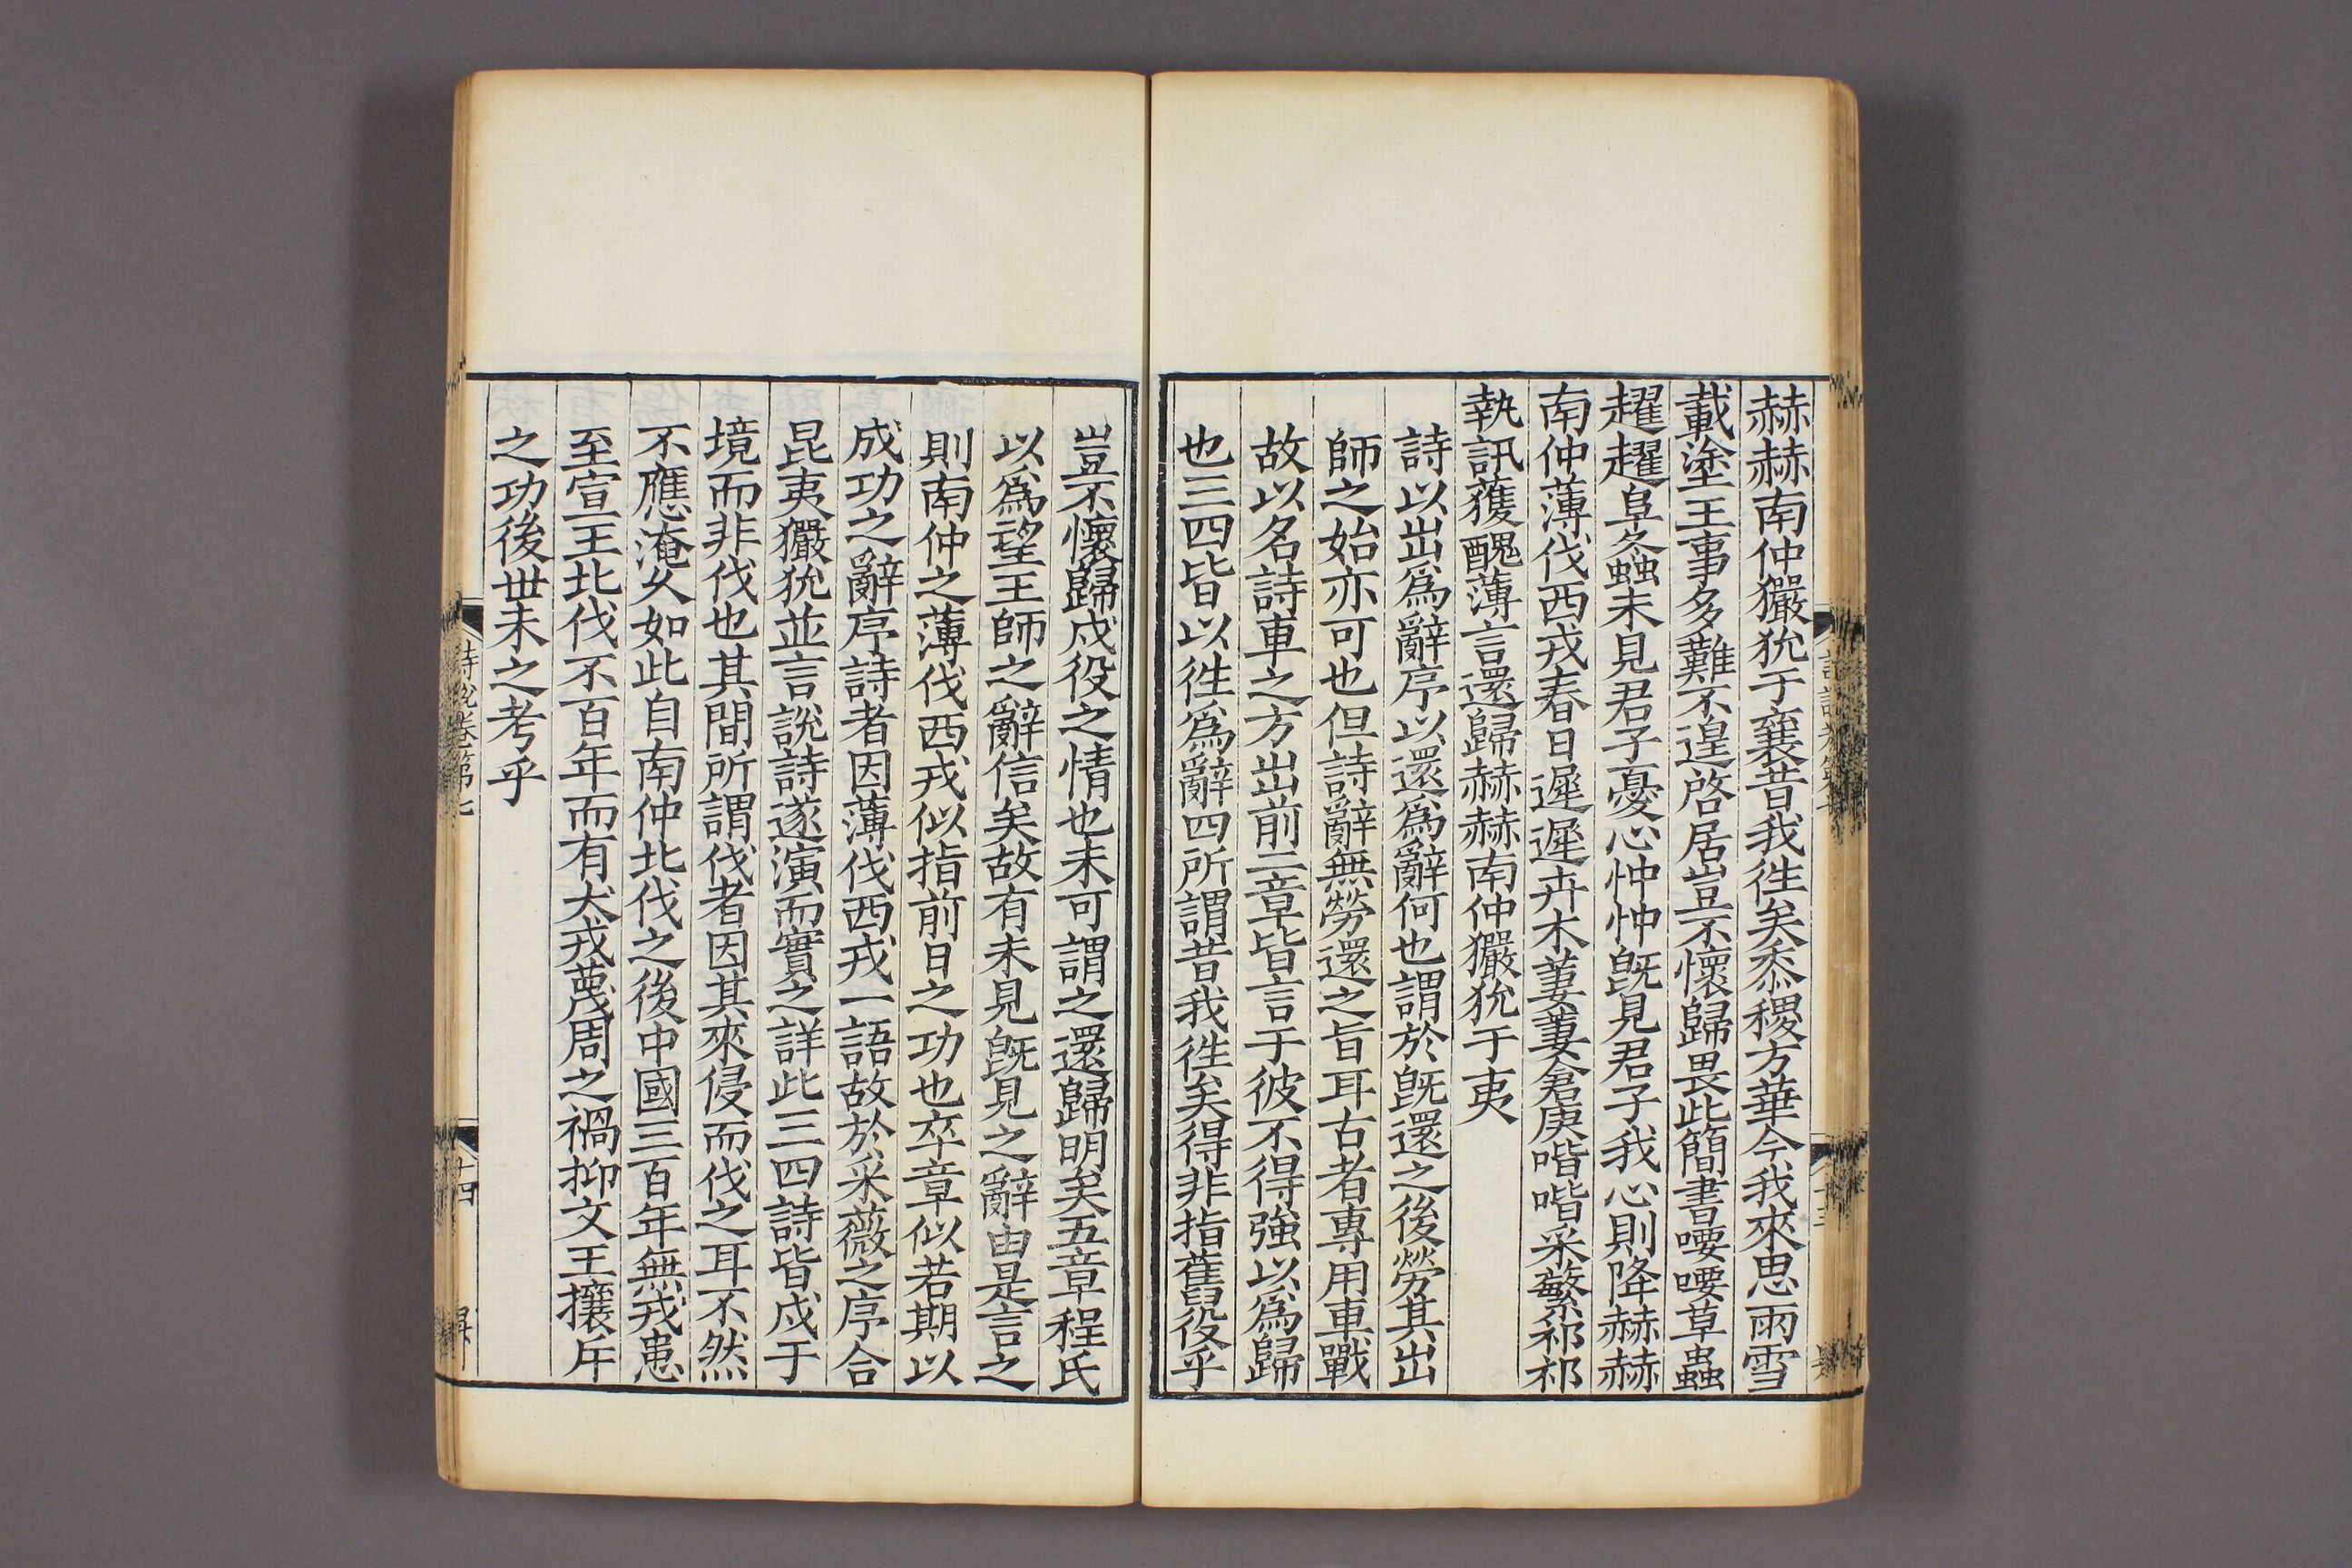 赫赫南仲玁狁于襄昔我徃矣黍稷方華今我來思雨雪
載塗王事多難不遑啓居豈不懷歸畏此簡書喓喓草蟲
趯趯阜螽未見君子憂心忡忡旣見君子我心則降赫赫
南仲薄伐西戎春日遲遲卉木萋萋倉庚喈喈采蘩祁祁
執訊獲醜薄言還歸赫赫南仲玁狁于夷
詩以出爲辭序以還爲辭何也謂於旣還之後勞其出
師之始亦可也但詩辭無勞還之旨耳古者專用車戰
故以名詩車之方出前二章皆言于彼不得強以爲歸
也三四皆以徃爲辭四所謂昔我徃矣得非指舊役乎
豈不懷歸戍役之情也未可謂之還歸明矣五章程氏
以爲望王師之辭信矣故有未見旣見之辭由是言之
則南仲之薄伐西戎似指前日之功也卒章似若期以
成功之辭序詩者因薄伐西戎一語故於采薇之序合
昆夷玁狁並言說詩遂演而實之詳此三四詩皆戍于
境而非伐也其間所謂伐者因其來侵而伐之耳不然
不應淹久如此自南仲北伐之後中國三百年無戎患
至宣王北伐不百年而有犬戎蔑周之禍抑文王攘斥
之功後世未之考乎
詩說卷第七
十四